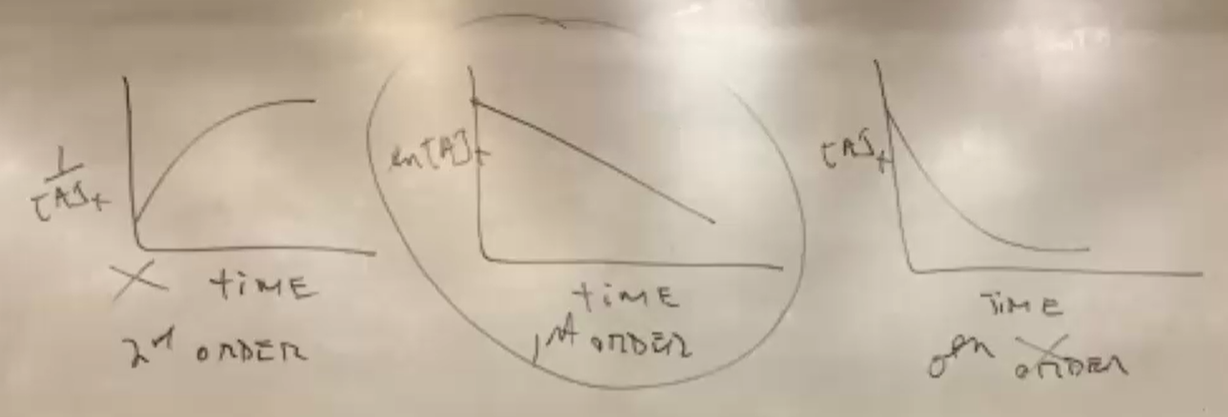 1
[A]t
X TIME
2nd ORDER
ln[A]t
TIME
1st ORDER
[A]t
TIME
0th ORDER